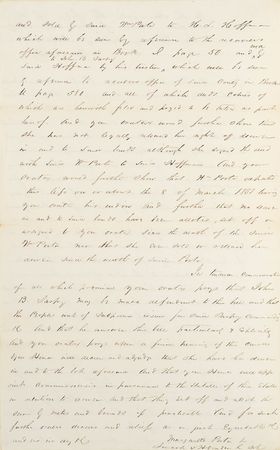 and sold by said Wm Porter to H. L. Hoffman
which will be seen by reference to the recorders
office aforesaid in Book I page 56 and by
to John B. Sarpy
said Hoffman by his trustee, which will be seen
by reference to recorders office of said County in Book
page 581 and all of which said Copies of
which are herewith filed and prayed to be taken as part
hereof And your oratrix would further show that
she has not legally released her right of dower
in and to said lands although she signed the deed
with said Wm Porter to said Hoffman And your
oratrix would further show that Wm Porter departed
this life on or about the 8 of March 1851 leaving
your oratrix his widow and further that no dower
in and to said lands have been allotted, set off or
assigned to your oratrix since the death of the said
Wm Porter nor has she ever sold or released her
dower since the death of said Porter
In tender consideration
of all which premises your oratrix prays that John
B. Sarpy may be made defendant to this bill and that
the Peoples writ of Subpoena issue for said Sarpy
& And that he answer this bill particularly &
And your oratrix prays upon a final hearing of this cause
your Honor will decree and adjudge that she have her dower
in and to the lots aforesaid And that your Honor will appoint
commissioners in pursuance to the Statutes of this State
in relation to dower and that they set off and allot the
same by metes and bounds if practicable And for such
further orders decrees and relief as in your
and as in duty &c
Margarette Porter by